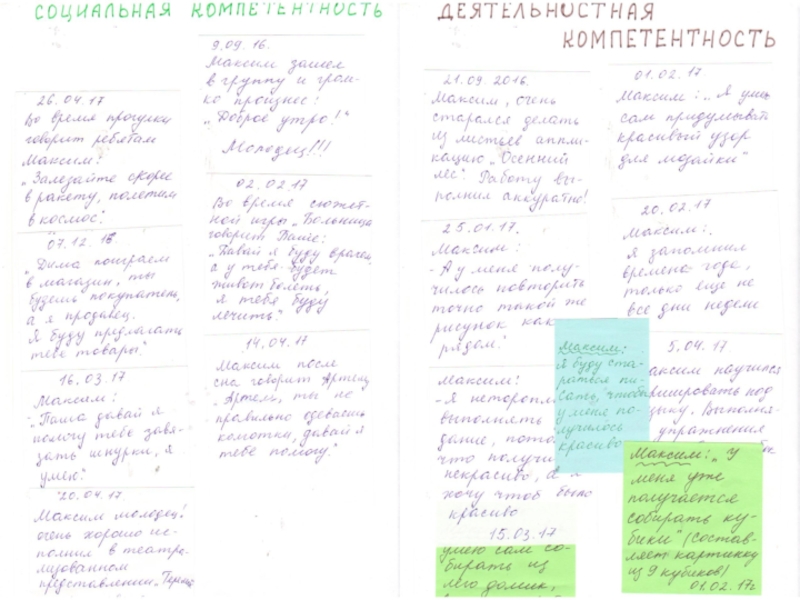 СОЦИАЛЬНАЯ КОМПЕТЕНТНОСТЬ
26.04.17
Во время прогулки
говорит ребятам
Максим:
"Залезайте скорее
в ракету, полетим
в космос."
07.12.16.
"Дима поиграем
в магазин, ты
будешь покупатель,
а я продавец.
Я буду предлагать
тебе товары."
16.03.17
Максим:
"Паша давай я
помогу тебе завя-
зать шнурки, я
умею."
20.04.17
Максим молодец!
очень хорошо ис-
полнил в театра-
лизованном
представлении
9.09.16.
Максим зашел
в группу и гром-
ко произнес:
"Доброе утро!"
Молодец!!!
02.02.17
Во время сюжет-
ной игры "Больница
говорит Паше:
"Давай я буду врачем,
а у тебя будет
живот болеть,
я тебя буду
лечить."
14.04.17
Максим после
сна говорит Артему
"Артем, ты не
правильно одеваешь
колготки, давай я
тебе помогу."
ДЕЯТЕЛЬНОСТНАЯ
КОМПЕТЕНТНОСТЬ
21.09.2016.
Максим, очень
старался делать
из листьев аппли-
кацию "Осенний
лес". Работу вы-
полнил аккуратно!
25.01.17.
Максим:
-А у меня полу-
чилось повторить
точно такой же
рисунок как
рядом."
Максим:
-Я неторопл
выполнять
дание, пото
что получи
некрасиво, а я
хочу чтоб было
красиво
15.03.17
умею сам со-
бирать из
лего домик,
01.02.17.
Максим: "Я умею
сам придумывать
красивый узор
для мозайки"
20.02.17
Максим:
я запомнил
времена года,
только еще не
все дни недели
Максим:
Я буду ста-
раться пи-
сать, чтобы
у меня по-
лучилось
красиво
5.04.17
аксим научился
под
зыку. Выполня
упражнения
Максим: "У
меня уже
получается
собирать ку-
бики" (состав-
ляет картинку
из 9 кубиков)
01.02.17г